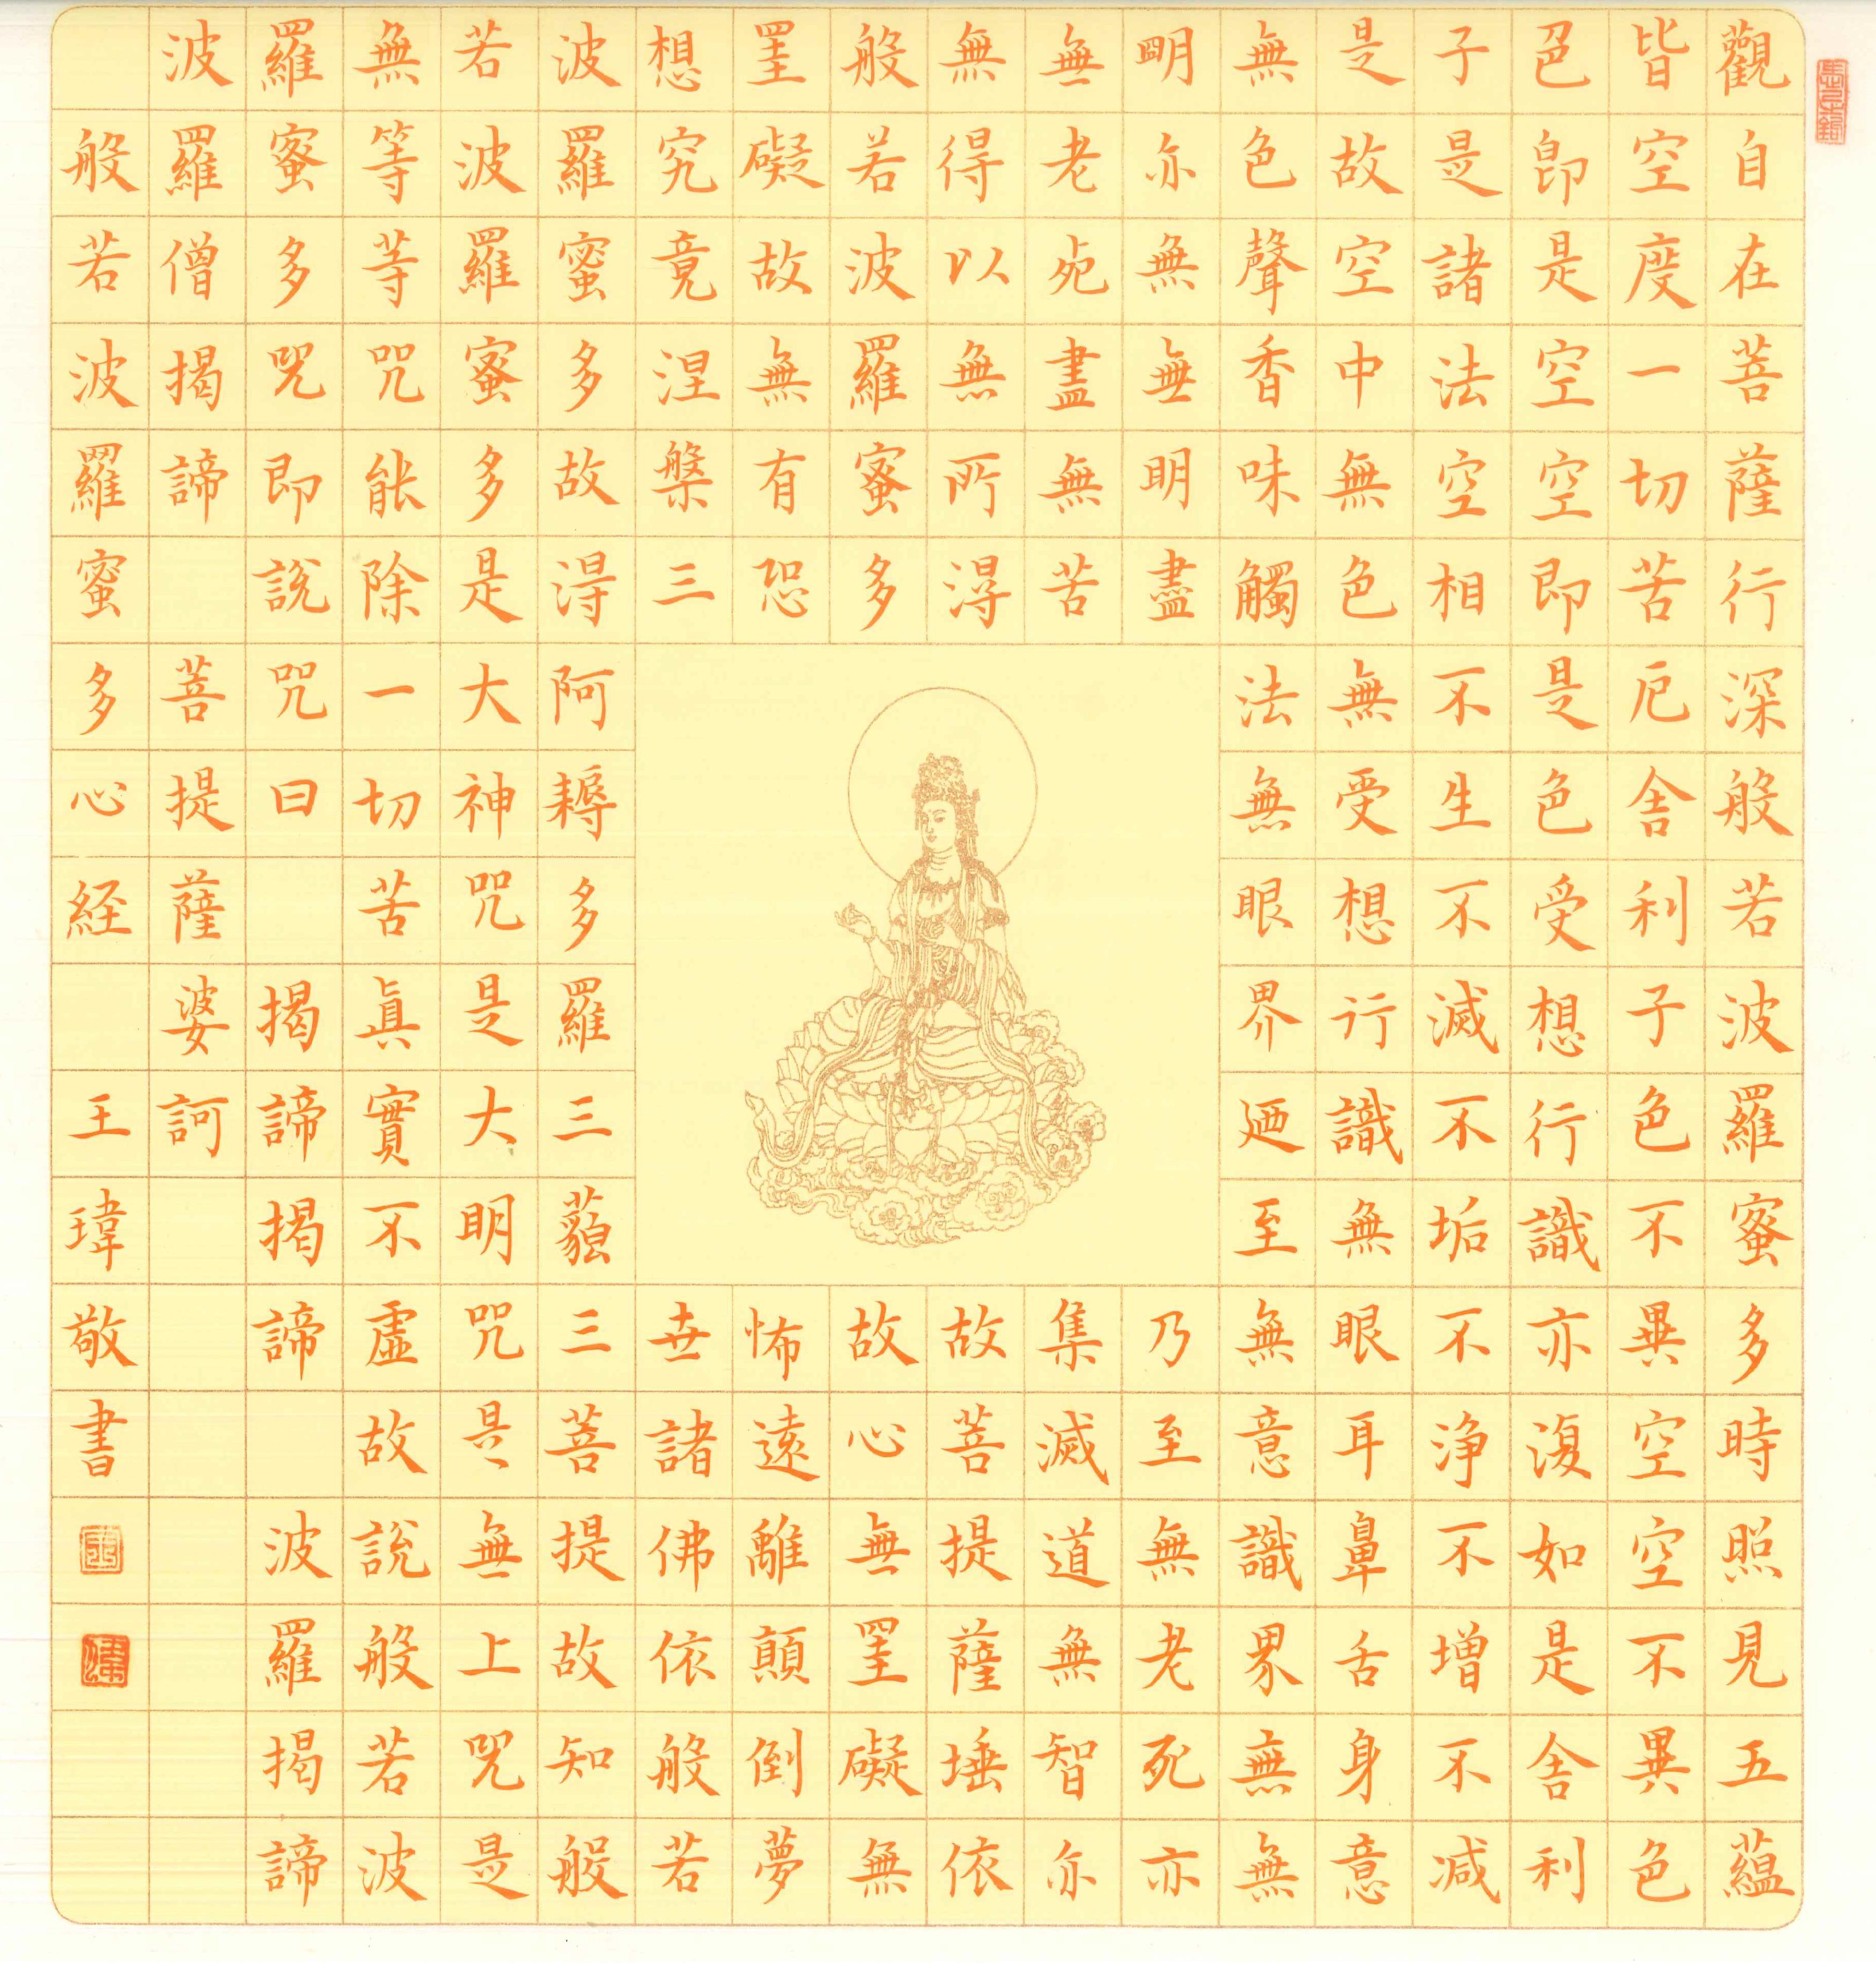 觀自在菩薩行深般若波羅蜜多時照見五蘊
皆空度一切苦厄舍利子色不異空空不異色
色即是空空即是色受想行識亦復如是舍利
子是諸法空相不生不滅不垢不淨不增不減
是故空中無色無受想行識無眼耳鼻舌身意
無色聲香味觸法無眼界廼至無意識界無無
明亦無無明盡乃至無老死亦
無老死盡無苦集滅道無智亦
無得以無所得故菩提薩埵依
般若波羅蜜多故心無罣礙無
罣礙故無有恐怖遠離顛倒夢
想究竟涅槃三世諸佛依般若
波羅蜜多故得阿耨多羅三藐三菩提故知般
若波羅蜜多是大神咒是大明咒是無上咒是
無等等咒能除一切苦真實不虛故說般若波
羅蜜多咒即說咒曰 揭諦揭諦 波羅揭諦
波羅僧揭諦 菩提薩婆訶
般若波羅蜜多心経 王瑋敬書